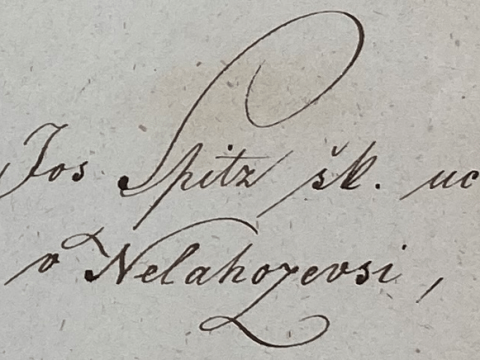 Jos Spitz šk. uc
v Nelahozevsi,